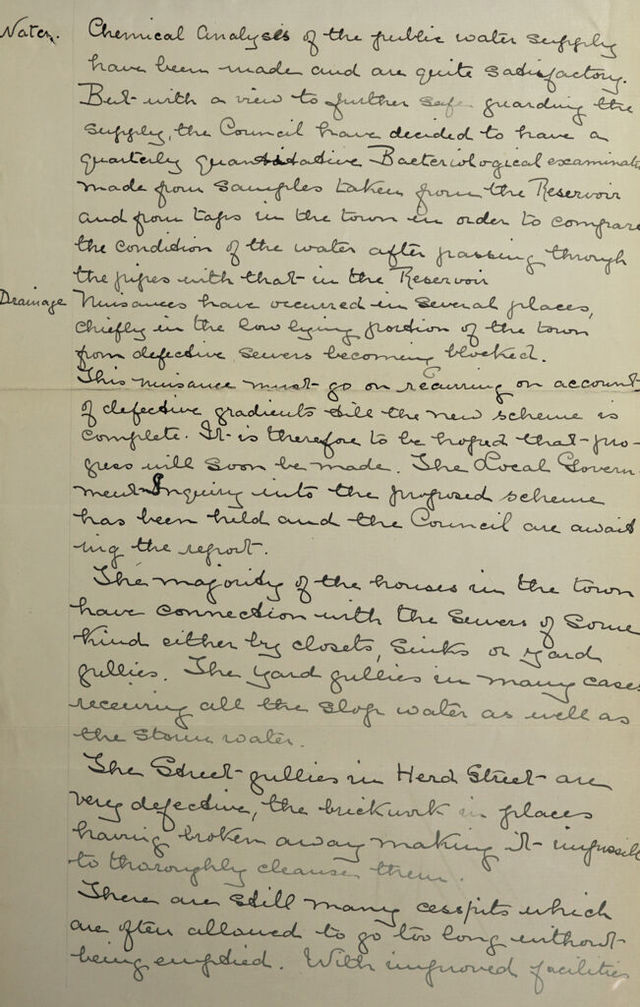 Water. Chemical Analyses of the public water supply
have been made and are quite satisfactory.
But with a view to further safe guarding the
supply, the Council have decided to have a
quarterly quantitative Bacteriological examinat
made from samples taken from the Reservoir
and from taps in the town in order to compare
the condition of the water after passing through
the pipes with that in the Reservoir
Drainage Nuisances have occurred in several places,
chiefly in the low lying portion of the town
from defective sewers becoming blocked.
This nuisance must go on recurring on account
of defective gradients till the new scheme is
complete. It is therefore to be hoped that pro-
gress will soon be made. The Local Govern-
ment Inquiry into the proposed scheme
has been held and the Council are await
ing the report.
The majority of the houses in the town
have connection with the sewers of some
kind either by closets, sinks or yard
gullies. The yard gullies in many cases
receiving all the slop water as well as
the storm water.
The Street gullies in Herd Street are
very defective, the brickwork in places
having broken away making it impossible
to thoroughly cleanse them.
There are still many cesspits which
are often allowed to go too long without
being emptied. With improved facilities